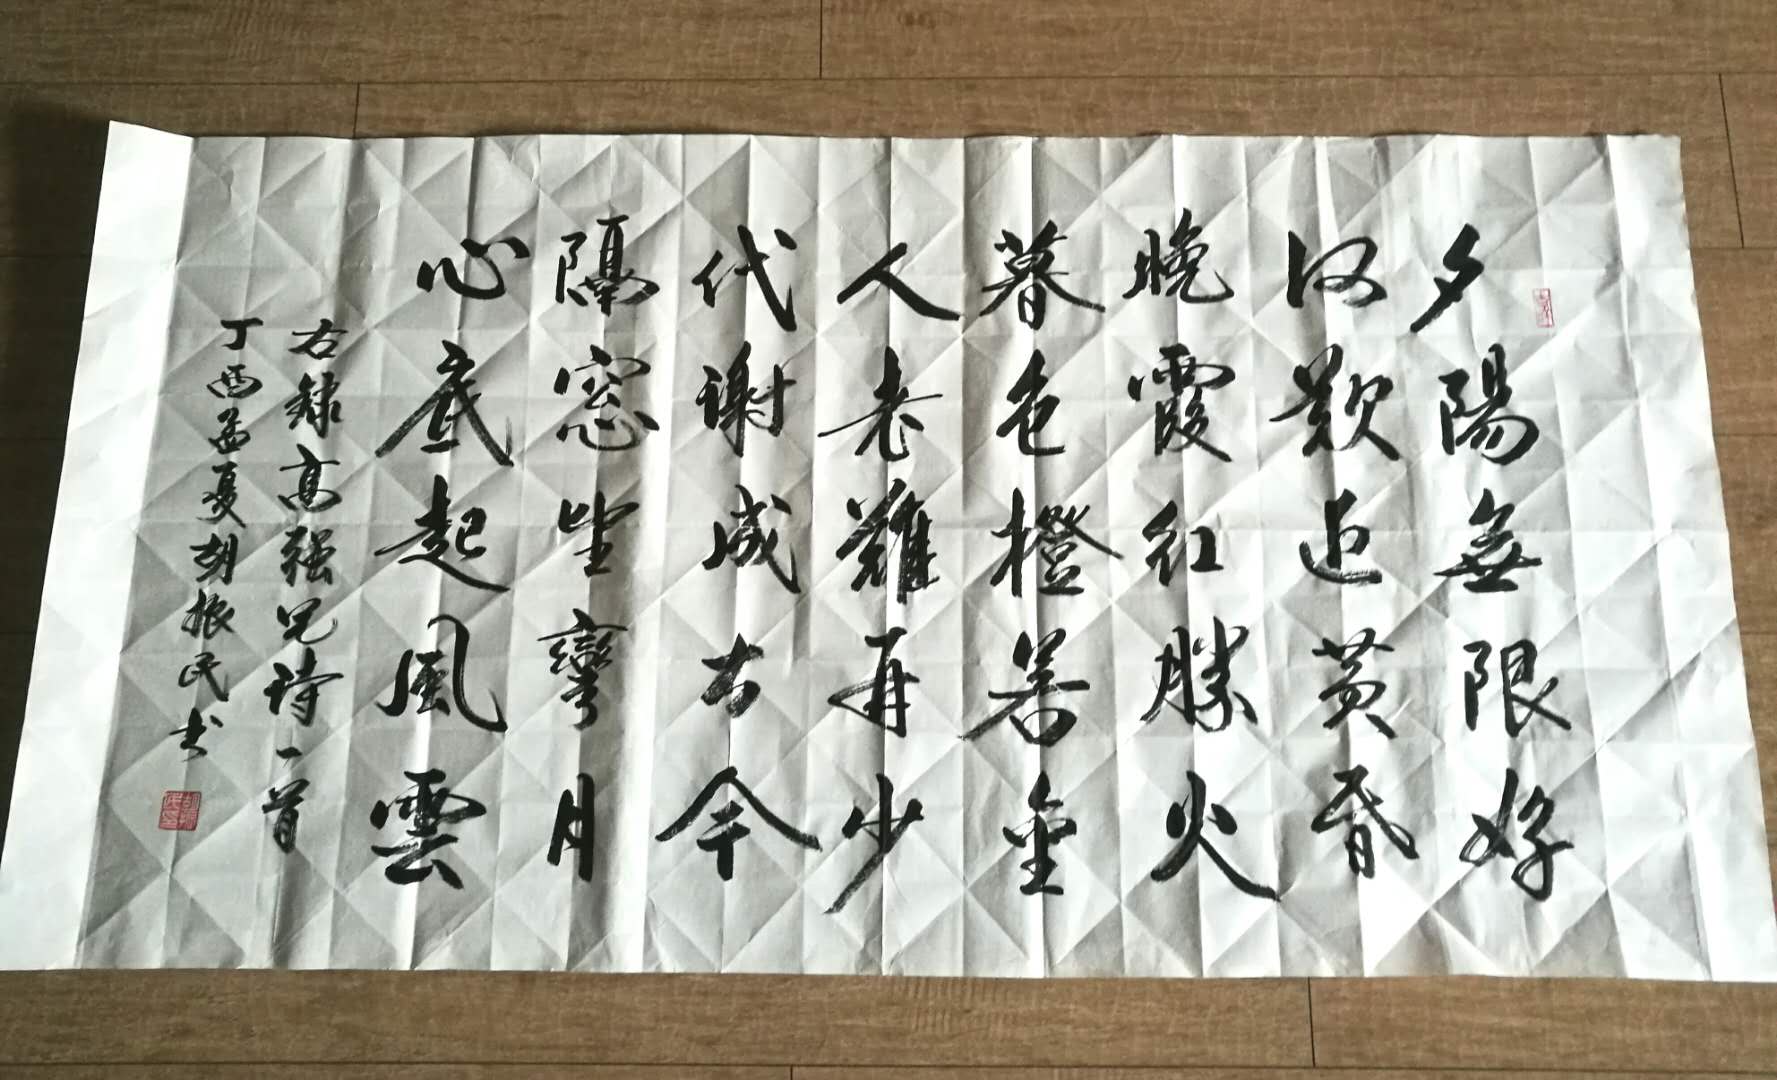 夕陽無限好
何歎近黄昏
晚霞红勝火
暮色橙若金
人老難再少
代谢成古今
隔窓望彎月
心底起風雲
右録高强兄诗一首
丁酉孟夏胡振民书